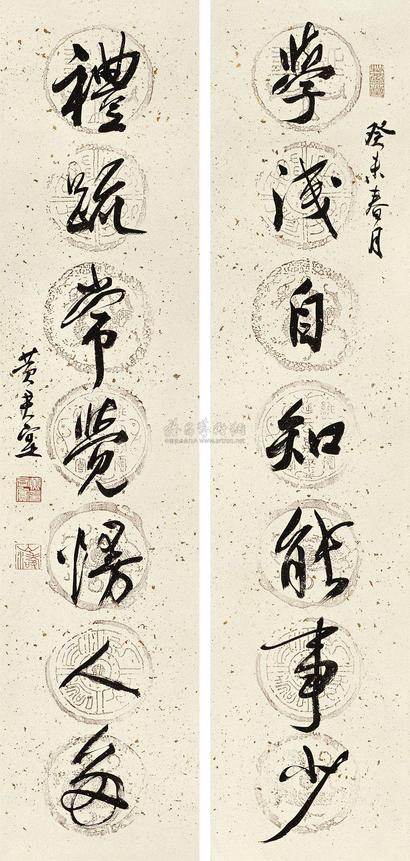 癸未春月
學淺自知能事少
禮疏常覺慢人多
黄君寔